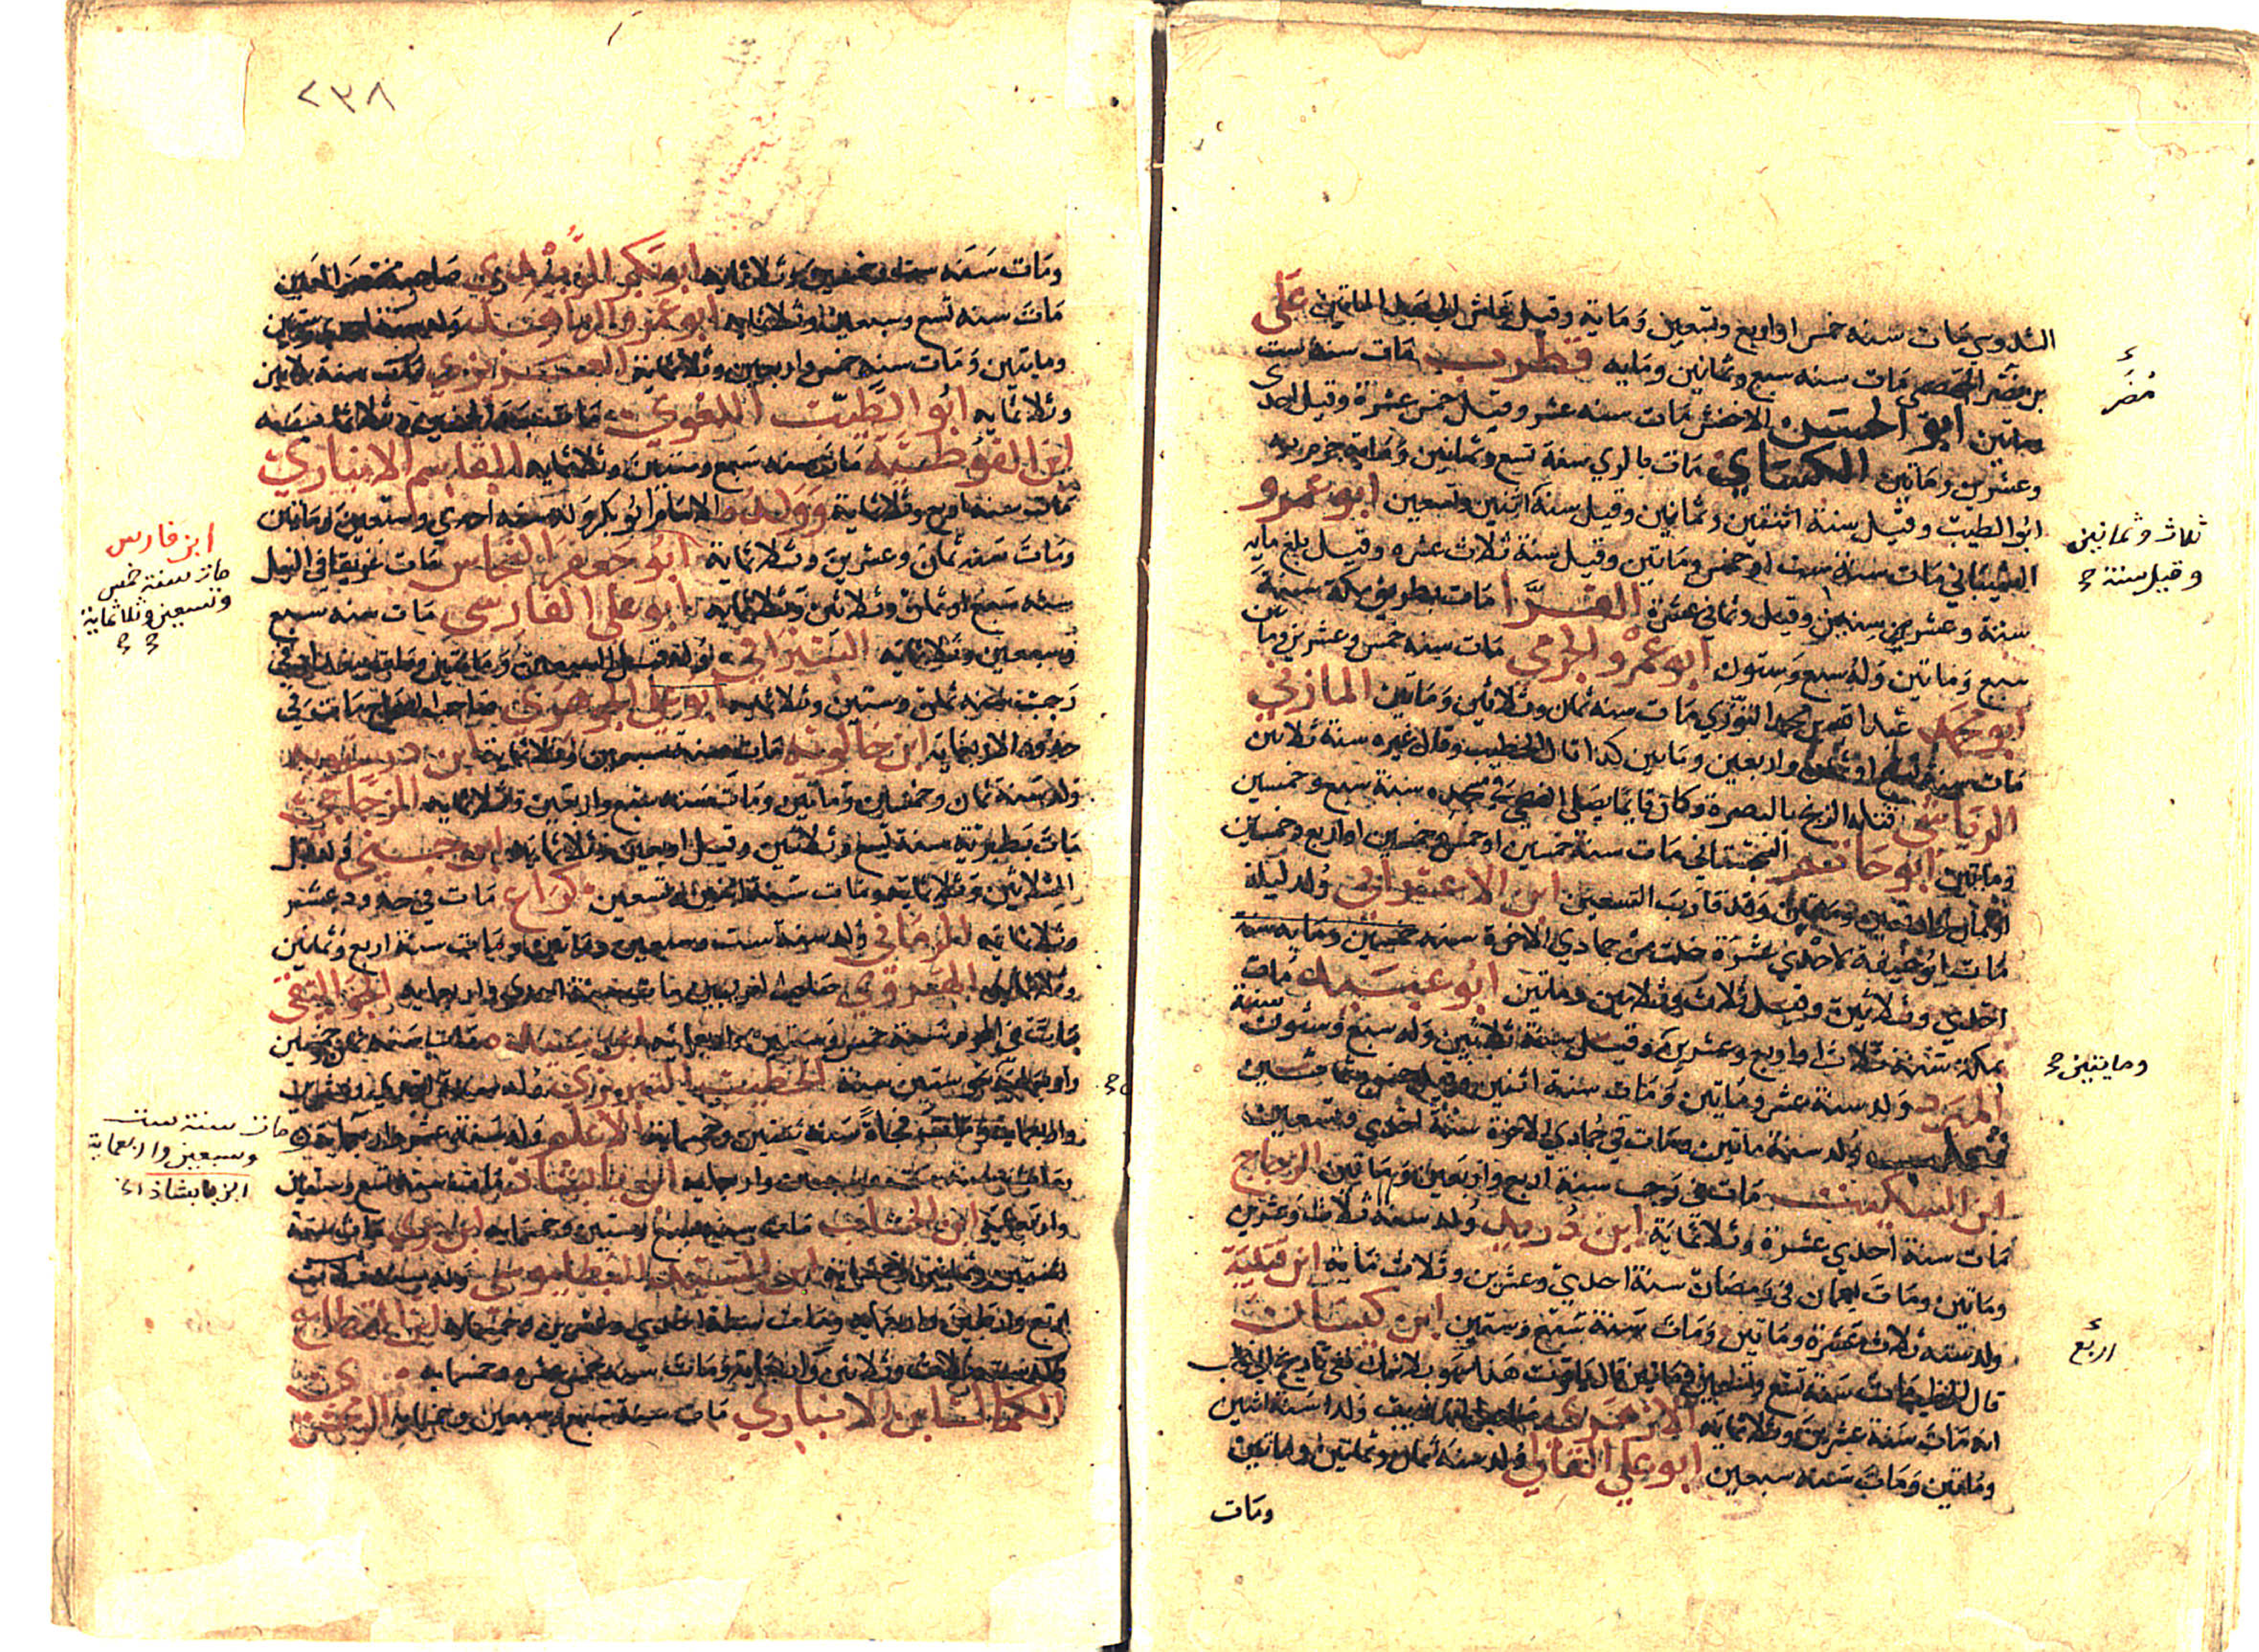 السدوسي مات سنه خمس او اربع وتسعين وماية وقيل عاش الى بعد الماتين علي
بن نصر الجهضمي مات سنه سبع وثمانين ومايه قطرب مات سنه ست
وماتين ابو الحسن الاخفش مات سنه عشر وقيل خمس عشرة وقيل احدي
وعشرين وماتين الكساي مات بالري سنة تسع وثمانين ومايه جزم به
ابو الطيب وقيل سنة اثنتين وثمانين وقيل سنة اثنين وتسعين ابو عمرو
الشيباني مات سنة ست او خمس وماتين وقيل سنة ثلاث عشره وقيل بلغ مايه
سنة وعشر سنين وقيل وثماني عشرة الفرا مات بطريق مكة سنة
سبع وماتين وله سبع وستون ابو عمرو الجرمي مات سنه خمس وعشرين وماتين
ابو محمد عبد الله بن محمد التوزي مات سنه ثمان وثلاثين وماتين المازني
مات سنة او ثمان واربعين وماتين كذا قال الخطيب وقال غيره سنة ثلاثين
الرياشي قتله الزنج بالبصرة وكان قايما يصلي الضحي في مسجده سنة سبع وخمسين
وماتين ابو حاتم السجستاني مات سنة خمسين او خمس وخمسين او اربع وخمسين
او ثمان واربعين وماتين وقد قارب التسعين ابن الاعرابي ولد ليلة
مات ابو حنيفة لاحدي عشرة خلت من جمادي الاخرة سنه خمسين ومايه سنه
احدي وثلاثين وقيل ثلاث وثلاثين وماتين ابو عبيد مات
بمكة سنة ثلاث او اربع وعشرين وقيل سنة ثلاثين وله سبع وستون سنة
المبرد ولد سنة عشر وماتين ومات سنة اثنين وقيل خمس وثمانين
ثعلب ولد سنة ماتين ومات في جمادي الاخرة سنة احدي وتسعين
ابن السكيت مات في رجب سنة اربع واربعين وماتين الزجاج
مات سنة احدي عشرة وثلاثماية ابن دريد ولد سنة ثلاث وعشرين
وماتين ومات بعمان في رمضان سنة احدي وعشرين وثلاث ماية ابن قتيبة
ولد سنه ثلاث عشرة وماتين ومات سنة سبع وستين ابن كيسان
قال الخطيب مات سنة تسع وتسعين وماتين قال ياقوت هذا سهو بلا شك ففي تاريخ ابي غالب
انه مات سنة عشرين وثلاثمايه الازهري صاحب التهذيب ولد سنة اثنين
وثمانين وماتين ومات سنه سبعين ابو علي القالي ولد سنة ثمان وثمانين وماتين
ومات
مُضَر
ثلاث وثمانين
وقيل سنة
وماتيين
اربع
٢٣٨
ومات سنه ست وخمسين وثلاثمايه ابو بكر الزبيدي صاحب مختصر العين
مات سنه تسع وسبعين وثلاثمايه ابو عمرو الزاهد ولد سنة احدي وستين
وماتين ومات سنه خمس واربعين وثلاثماية العزيزي مات سنة ثلاثين
وثلاثمايه ابو الطيب اللغوي مات بعد الخمسين وثلاثمايه
ابن القوطية مات سنه سبع وستين وثلاثمايه القاسم الانباري
مات سنه اربع وثلاثماية وولده الامام ابو بكر ولد سنه احدي وسبعين وماتين
ومات سنه ثمان وعشرين وثلاثماية ابو جعفر النحاس مات غريقا في النيل
سنه سبع او ثمان وثلاثين وثلاثمايه ابو علي الفارسي مات سنه سبع
وسبعين وثلاثمايه السيرافي ولد قبل السبعين وماتين ومات في
رجب سنه ثمان وستين وثلاثمايه ابو علي الجوهري صاحب الصحاح مات في
حدود الاربعمايه ابن خالويه مات سنة سبعين وثلاثمايه ابن درستويه
ولد سنة ثمان وخمسين وماتين ومات سنه سبع واربعين وثلاثمايه الزجاجي
مات بطبرية سنة تسع وثلاثين وقيل اربعين وثلاثمايه ابن جني ولد قبل
الثلاثين وثلاثمايه ومات سنة اثنين وتسعين كراع مات في حدود عشر
وثلاثمايه الرماني ولد سنة ست وسبعين وماتين ومات سنة اربع وثمانين
وثلاثمايه الهروي صاحب الغريبين مات سنة احدي واربعمايه الجواليقي
مات في المحرم سنة خمس وستين واربعمايه ابن سيده مات سنه ثمان وخمسين
واربعماية عن نحو ستين سنة الخطيب التبريزي ولد سنة احدي وعشرين
واربعماية ومات فجاة سنة اثنين وخمسماية الاعلم ولد سنة عشر واربعماية
ابن بابشاذ مات سنة تسع وستين
واربعماية ابن الخشاب مات سنة سبع وستين وخمسمايه ابن بري مات سنة
اثنتين وثمانين وخمسمايه ابن السيد البطليوسي ولد سنة
اربع واربعين واربعمايه ومات سنة احدي وعشرين وخمسمايه ابن القطاع
ولد سنة ثلاث وثلاثين واربعمايه ومات سنه خمس عشره وخمسمايه
الكمال ابن الانباري مات سنة سبع وسبعين وخمسمايه الزمخشري
ابن فارس
مات سنة خمس
وتسعين وثلاثماية
مات سنة ست
وسبعين واربعماية
ابن بابشاذ الخ